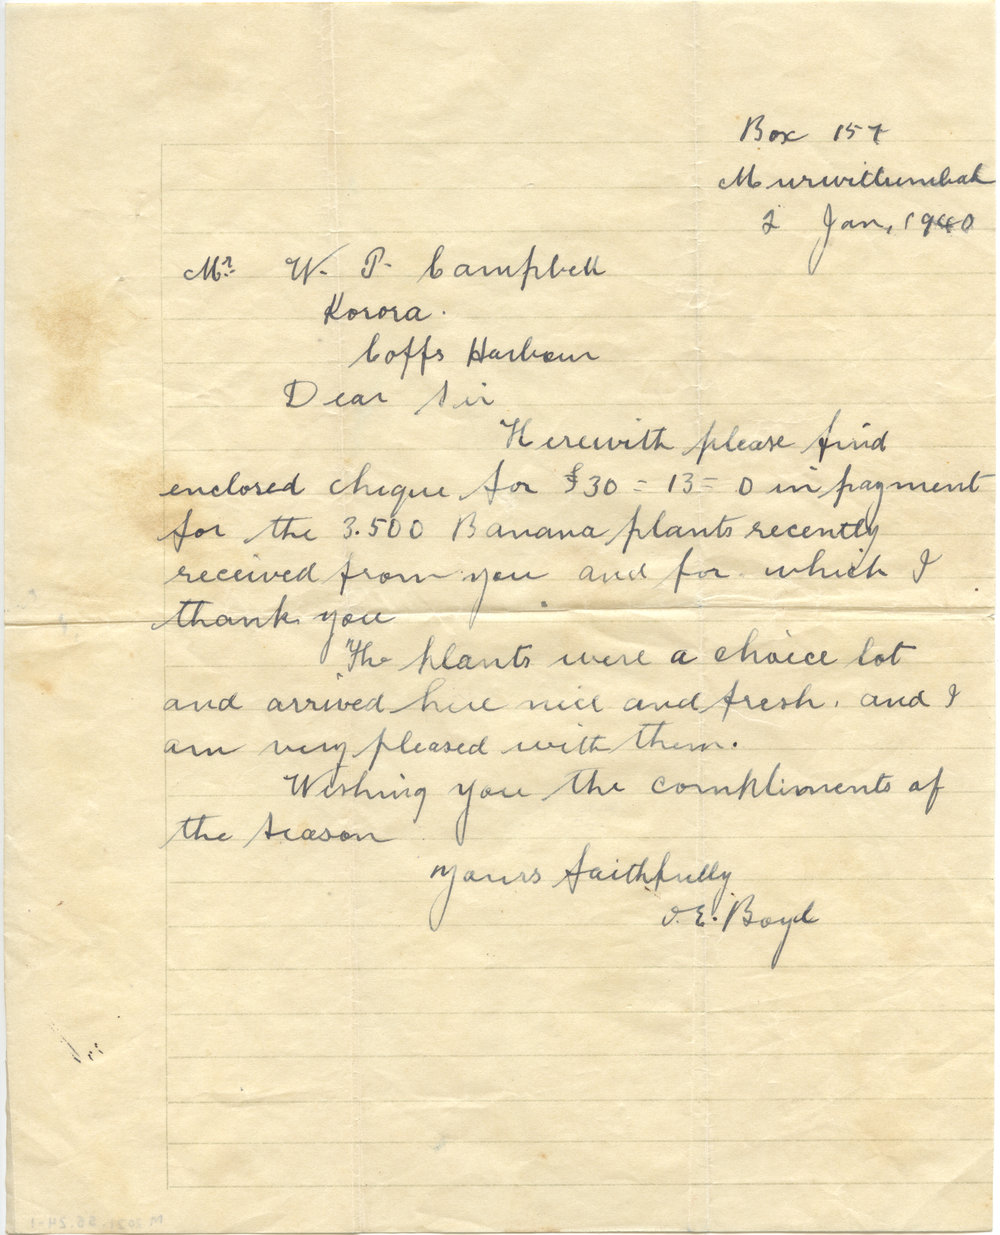 Box 157
Murwillumbah
2 Jan, 1940
Mr. W. P. Campbell
Korora.
Coffs Harbour
Dear Sir
Herewith please find
enclosed cheque for £30 = 13 = 0 in payment
for the 3.500 Banana plants recently
received from you and for which I
thank you
The plants were a choice lot
and arrived here nice and fresh. and I
am very pleased with them.
Wishing you the compliments of
the season
Yours faithfully
E. Boyd
M 2021.56.24-1